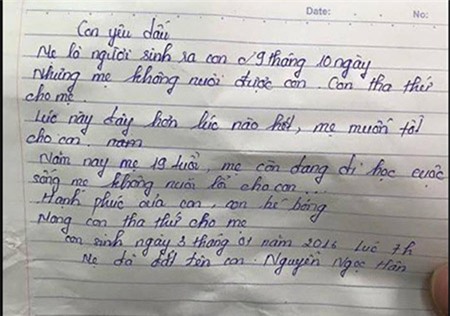 Date: No:
Con yêu dấu
Mẹ là người sinh ra con 9 tháng 10 ngày
Nhưng mẹ không nuôi được con. Con tha thứ
cho mẹ.
Lúc này đây hơn lúc nào hết, mẹ muốn tốt
cho con.
Năm nay mẹ 19 tuổi, mẹ còn đang đi học cuộc
sống mẹ không nuôi lổ cho con...
Hanh phúc của con, con bé bỏng
Mong con tha thứ cho mẹ
con sinh ngày 3 tháng 01 năm 2016 luc 7h
Mẹ đã đặt tên con. Nguyễn Ngọc Hân